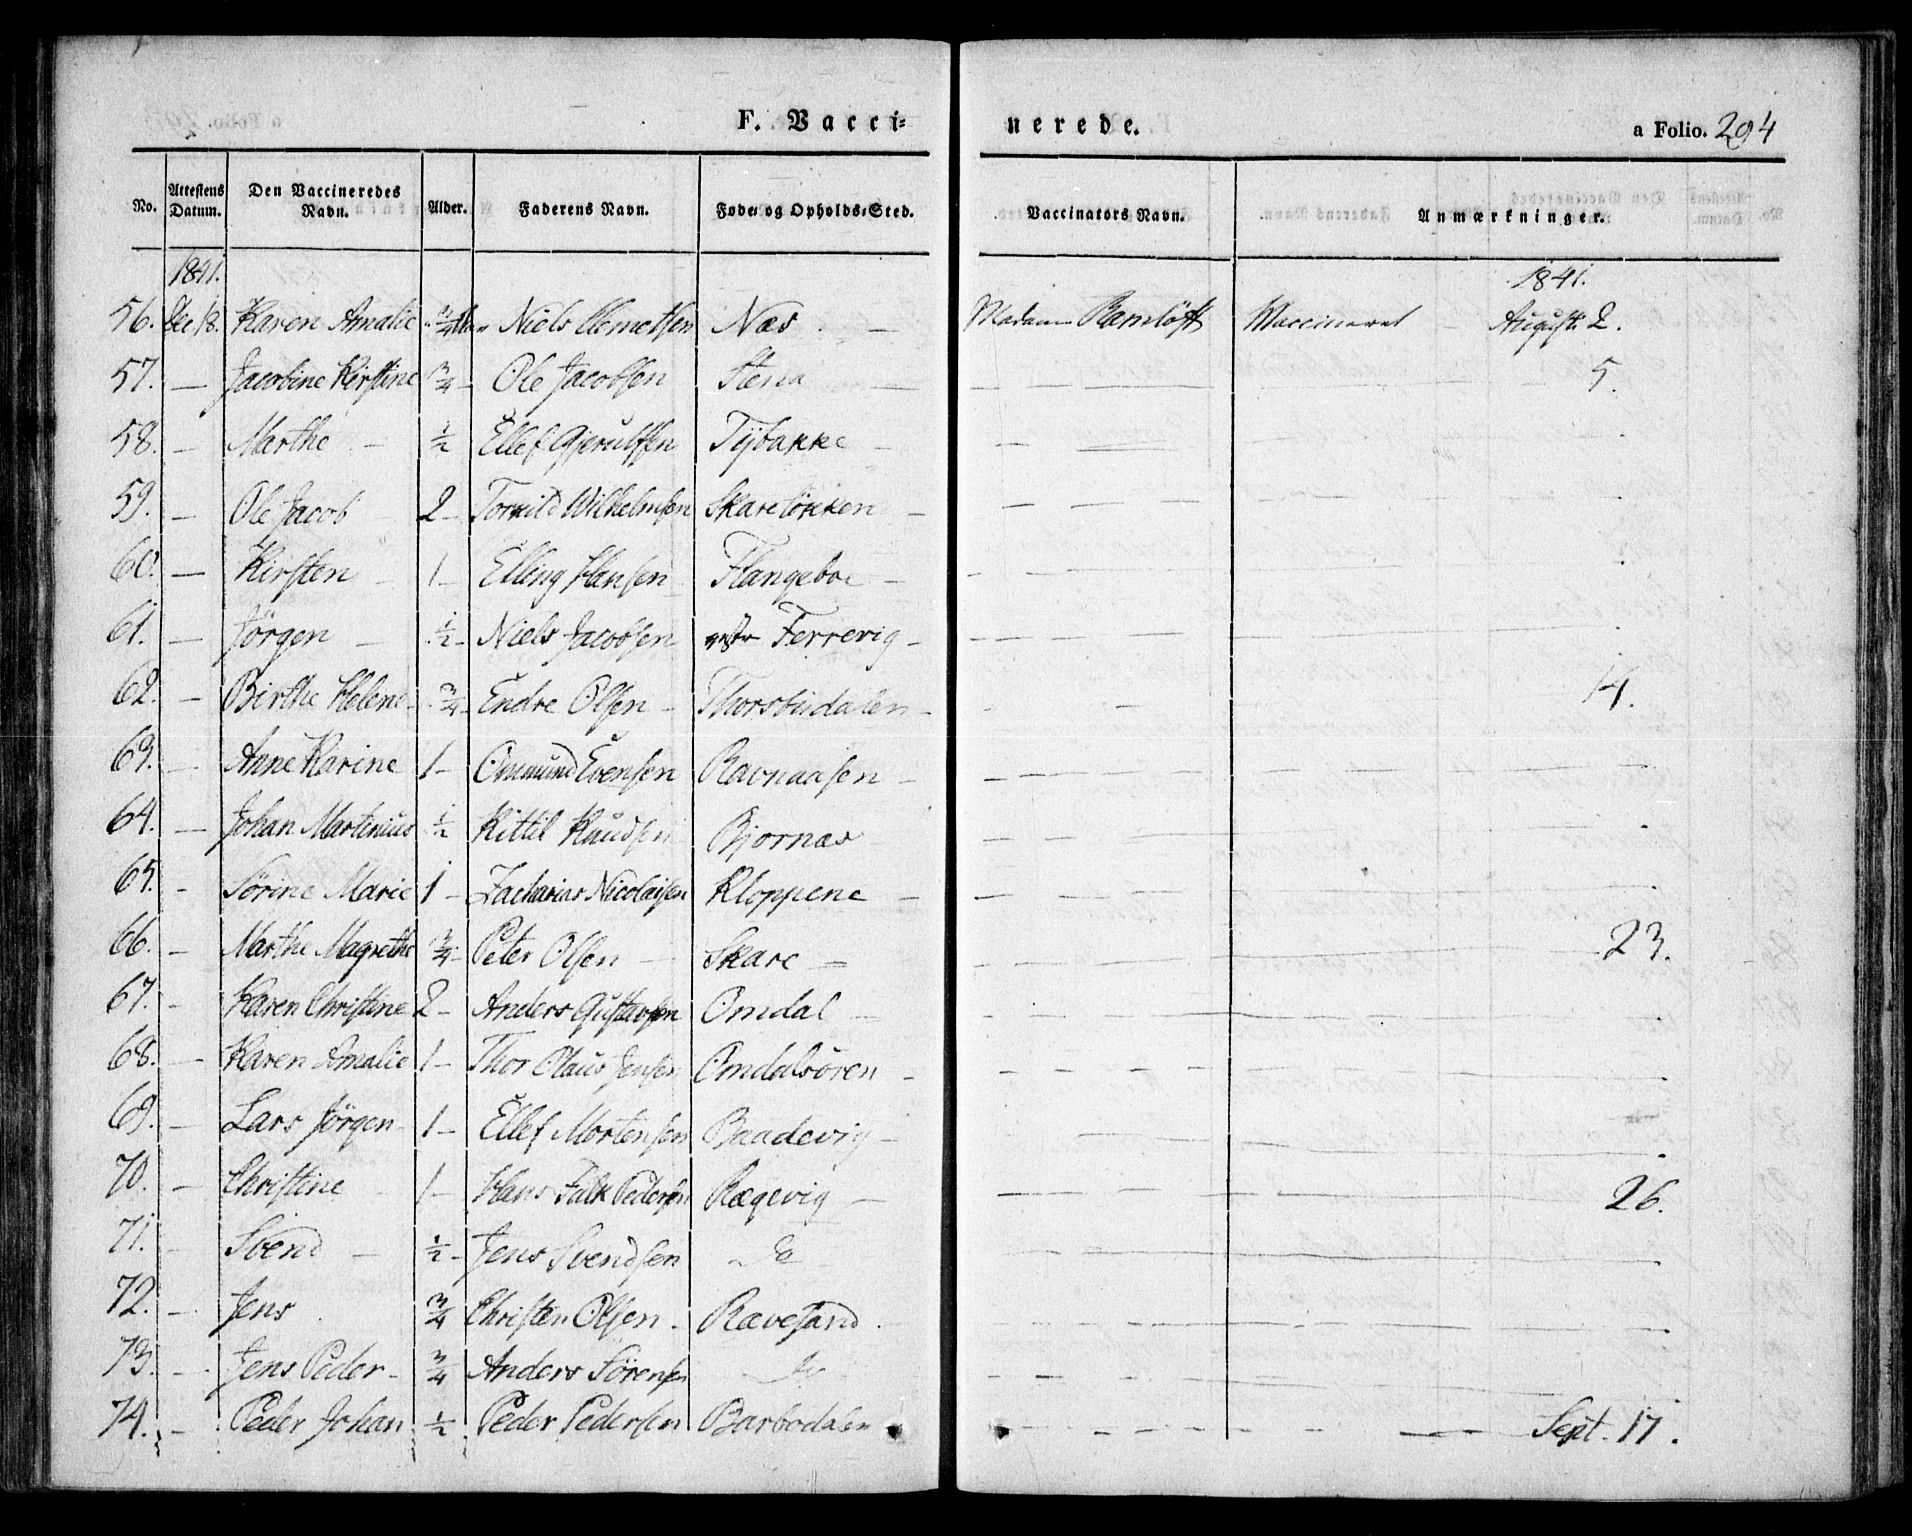 F. Vacci=
nerede.
a Folio. 294
No. Attestens Datum. Den Vaccineredes Navn. Alder. Faderens Navn. Føde= og Opholds=Sted. Vaccinators Navn. Anmærkninger.
1841. 1841.
56. Dec 18. Karen Amalie 3/4 Niels Clemetsen Næs — Madam Vaccineret August 2.
57. — Jacobine Kirstine 3/4 - Ole Jacobsen Stena — 5.
58. — Marthe - 1/2 Ellef Gjerulfsen Tijbakke -
59. — Ole Jacob 2 - Torkild Wilhelmsen Skareløkken -
60. — Kirsten - 1 - Elling Hansen - Flangeboe -
61. — Jörgen - 1/2 - Niels Jacobsen Ferrevig -
62. — Birthe Helene - 3/4 - Endre Olsen - Thorsbudalen - 14.
63. — Anne Karine 1 - Ommund Evensen Ravnaasen -
64. — Johan Martinius 1/2 Kittil Knudsen Bjornæs
65. - Sörine Marie 1 - Zacharias Nicolaisen Kloppene -
66. - Marthe Magrethe 3/4 - Peter Olsen - Skare - 23.
67. - Karen Christine 2 - Anders Gustavsen Omdal -
68. - Karen Amalie 1 - Thor Olaus Jensen Omdalsören -
69. - Lars Jörgen - 1 - Ellef Mortensen Baadevig -
70. - Christine - 1 - Hans Falk Pedersen Rægevig - 26.
71. - Svend - 1/2 - Jens Svendsen do
72. - Jens 3/4 Christen Olsen - Rævesand
73. - Jens Peder - 3/4 Anders Sörensen do
74. - Peder Johan 1/2 Peder Pedersen Barbodalen Sept. 17.